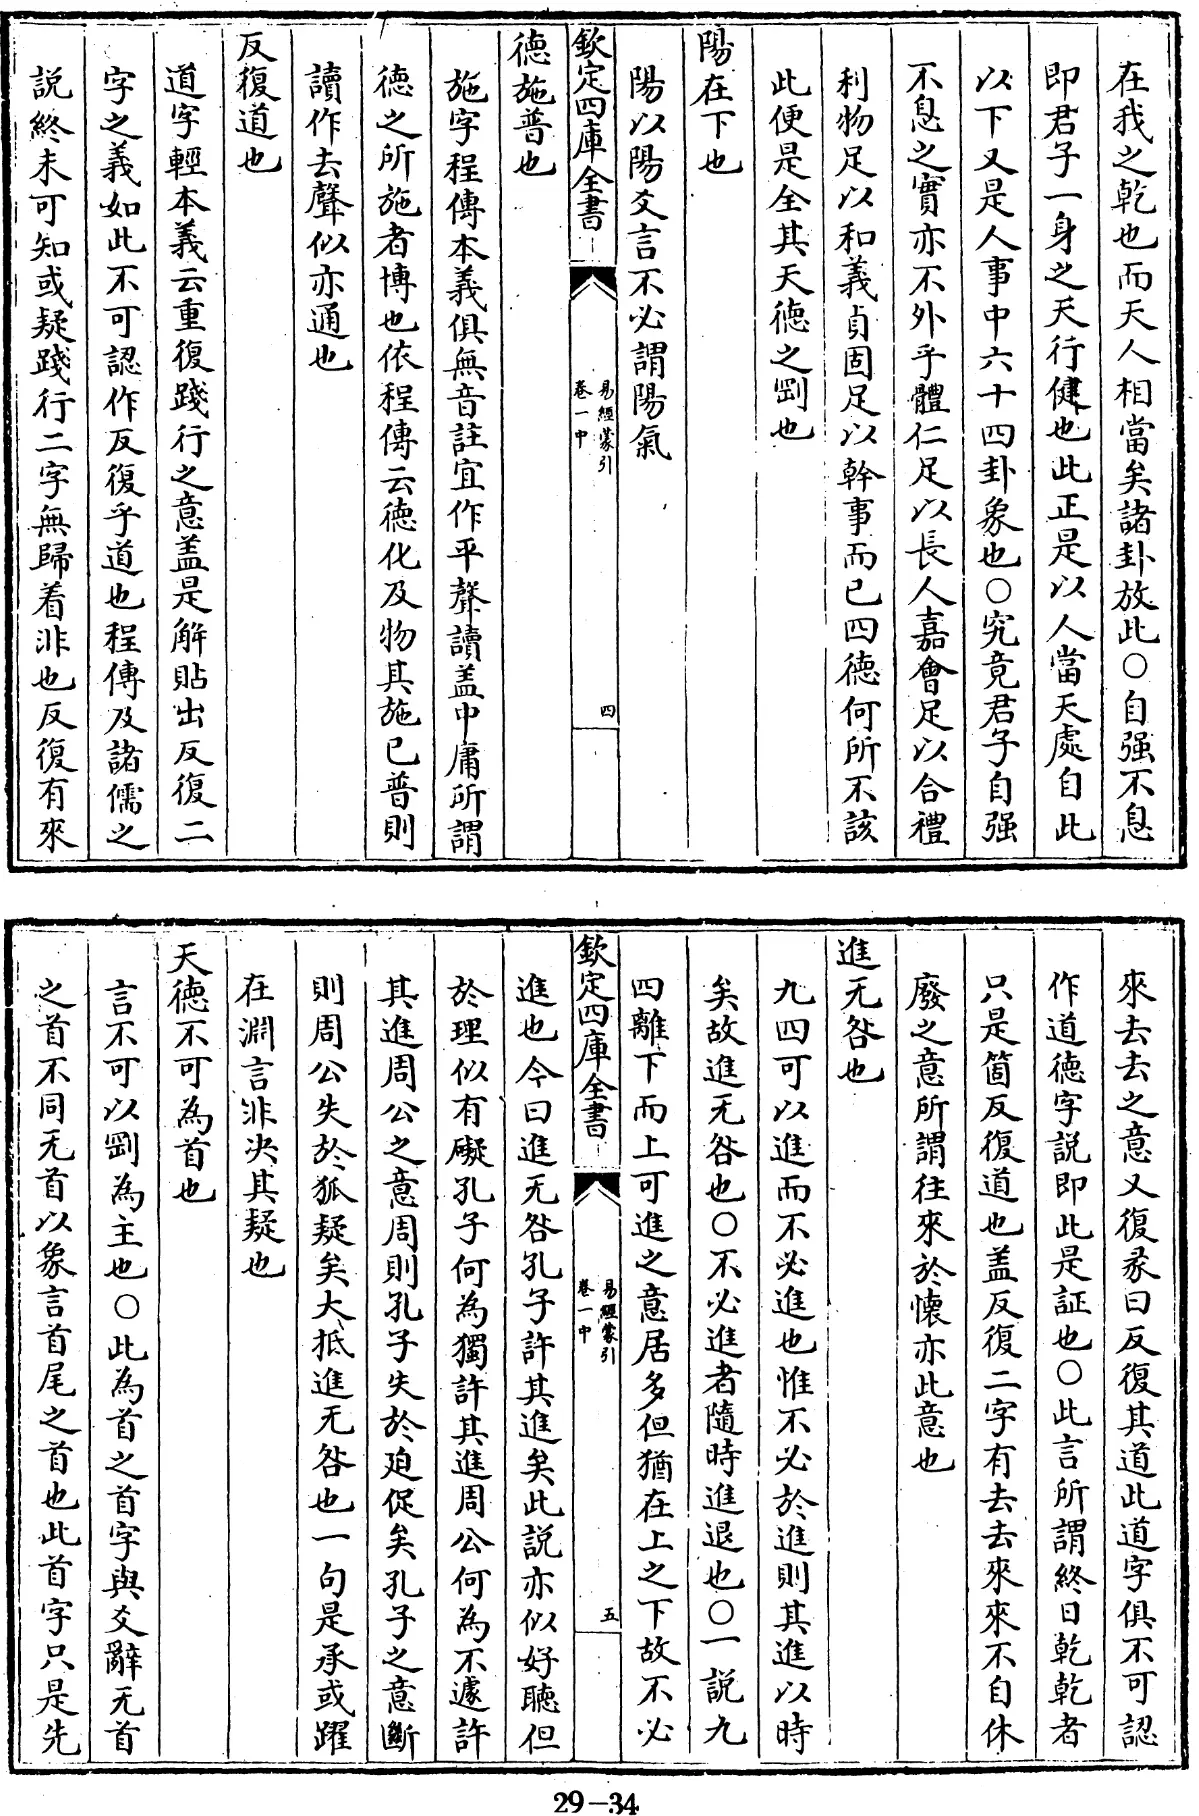 在我之乾也而天人相當矣諸卦放此○自强不息
即君子一身之天行健也此正是以人當天處自此
以下又是人事中六十四卦象也○究竟君子自强
不息之實亦不外乎體仁足以長人嘉會足以合禮
利物足以和義貞固足以幹事而已四德何所不該
此便是全其天德之剛也
陽在下也
陽以陽爻言不必謂陽氣
欽定四庫全書
易經蒙引
卷一中
四
德施普也
施字程傳本義俱無音註宜作平聲讀盖中庸所謂
德之所施者博也依程傳云德化及物其施已普則
讀作去聲似亦通也
反復道也
道字輕本義云重復踐行之意盖是解貼出反復二
字之義如此不可認作反復乎道也程傳及諸儒之
説終未可知或疑踐行二字無歸着非也反復有來
來去去之意又復彖曰反復其道此道字俱不可認
作道德字説即此是証也○此言所謂終日乾乾者
只是箇反復道也盖反復二字有去去來來不自休
廢之意所謂往來於懐亦此意也
進无咎也
九四可以進而不必進也惟不必於進則其進以時
矣故進无咎也○不必進者隨時進退也○一説九
四離下而上可進之意居多但猶在上之下故不必
欽定四庫全書
易經蒙引
卷一中
五
進也今曰進无咎孔子許其進矣此説亦似好聽但
於理似有礙孔子何為獨許其進周公何為不遽許
其進周公之意周則孔子失於廹促矣孔子之意斷
則周公失於狐疑矣大抵進无咎也一句是承或躍
在淵言非决其疑也
天德不可為首也
言不可以剛為主也○此為首之首字與爻辭无首
之首不同无首以象言首尾之首也此首字只是先
29-34